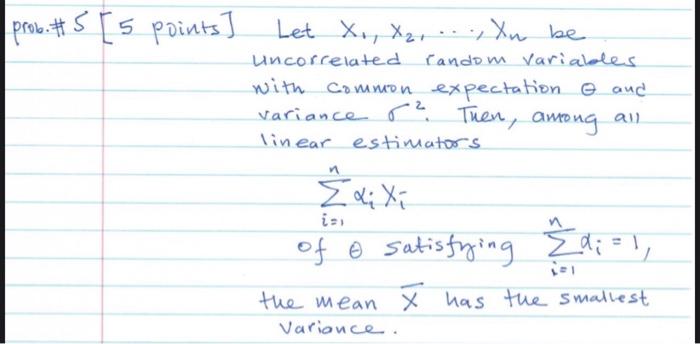 prob.# 5 [5 points] Let X₁, X₂, ..., Xn be
uncorrelated random variables
with common expectation θ and
variance σ². Then, among all
linear estimators
n
∑ αi Xi
i=1
of θ satisfying n∑i=1 αi = 1,
the mean X̄ has the smallest
variance.